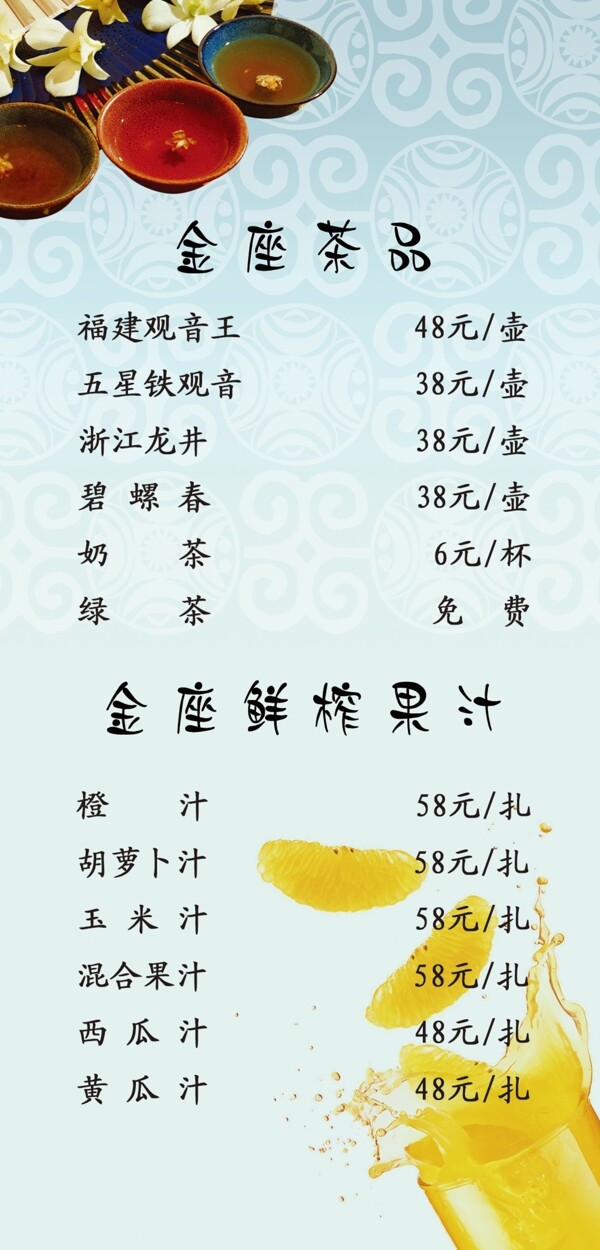 金座茶品
福建观音王 48元/壶
五星铁观音 38元/壶
浙江龙井 38元/壶
碧螺春 38元/壶
奶茶 6元/杯
绿茶 免费
金座鲜榨果汁
橙汁 58元/扎
胡萝卜汁 58元/扎
玉米汁 58元/扎
混合果汁 58元/扎
西瓜汁 48元/扎
黄瓜汁 48元/扎